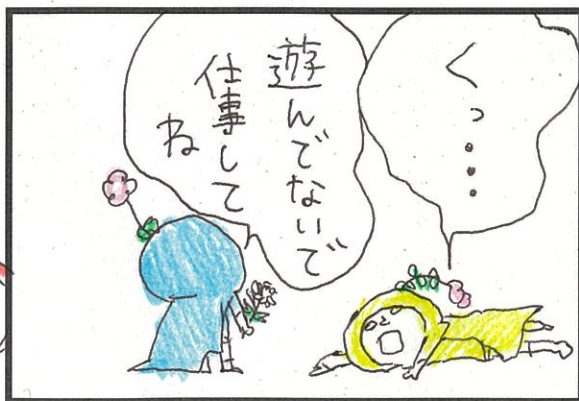 くっ...
遊んでないで
仕事して
ね